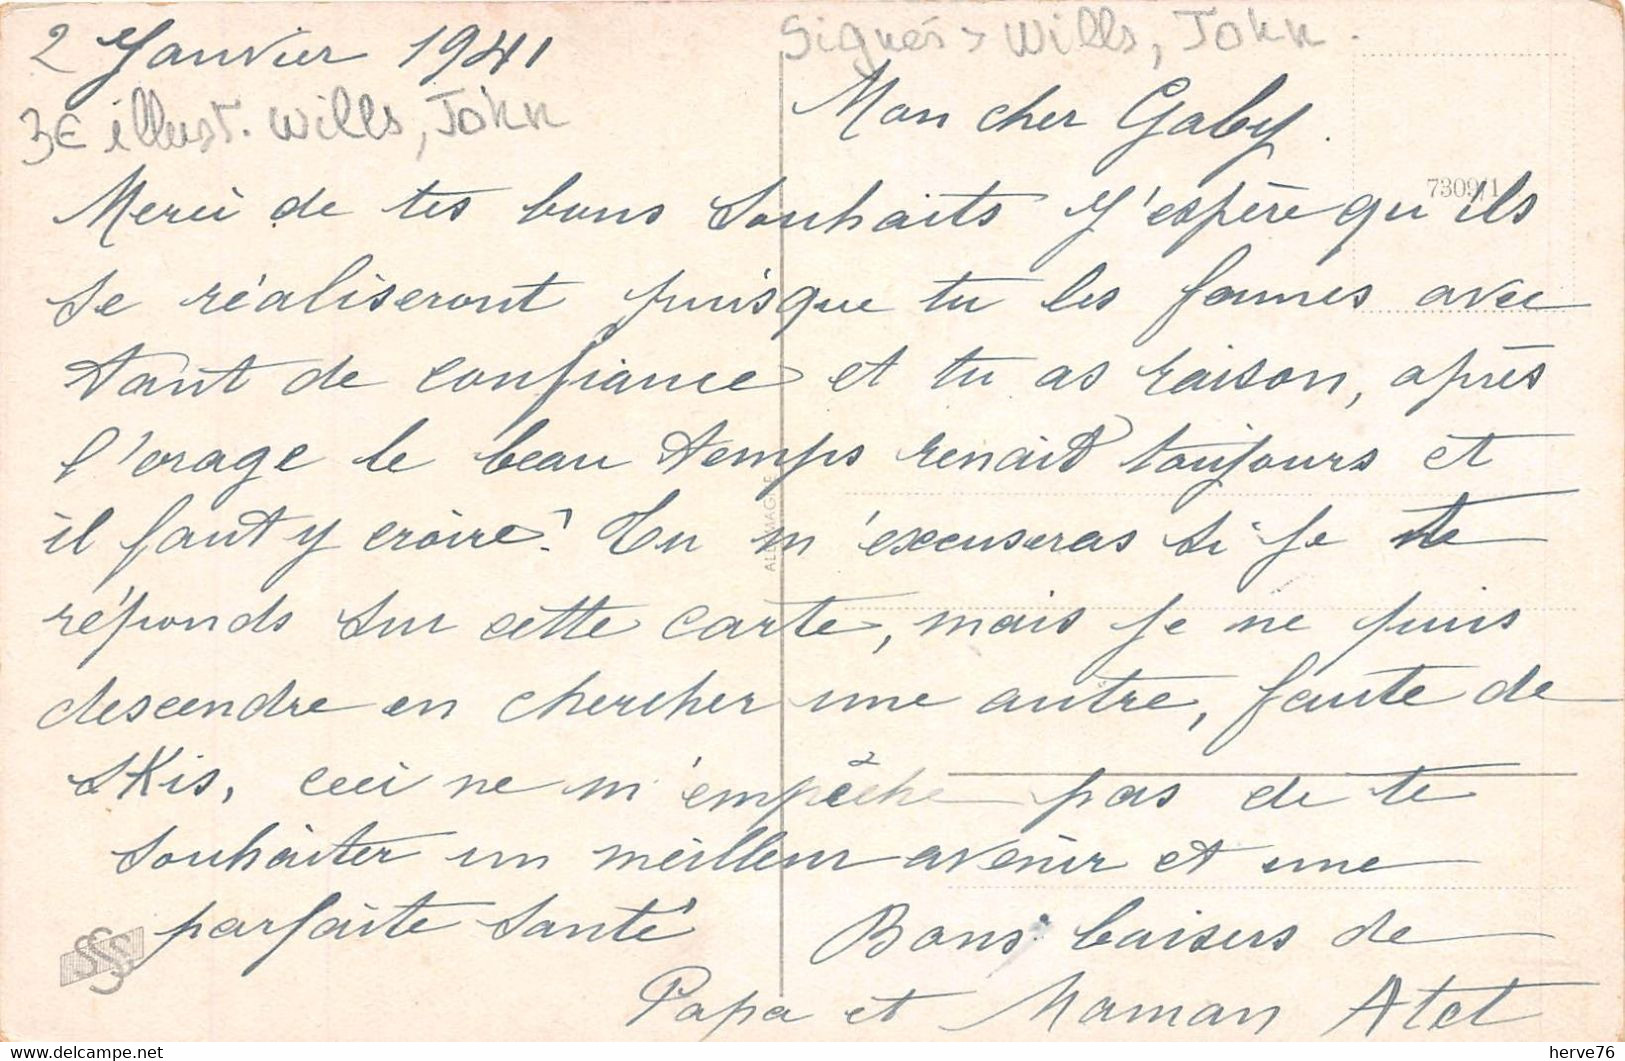 2 Janvier 1941
Signés > Wills, John.
3€ illust. Wills, John
Mon cher Gaby.
7309/1
Merci de tes bons souhaits J'espère qu'ils
se réaliseront puisque tu les formes avec
tant de confiance et tu as raison, après
l'orage le beau temps renait toujours et
il faut y croire! Tu m'excuseras si je te
réponds sur cette carte, mais je ne puis
descendre en chercher une autre, faute de
skis, ceci ne m'empêche pas de te
souhaiter un meilleur avenir et une
parfaite santé
Bons baisers de
Papa et Maman
ALLEMAGNE
SSS
herve76